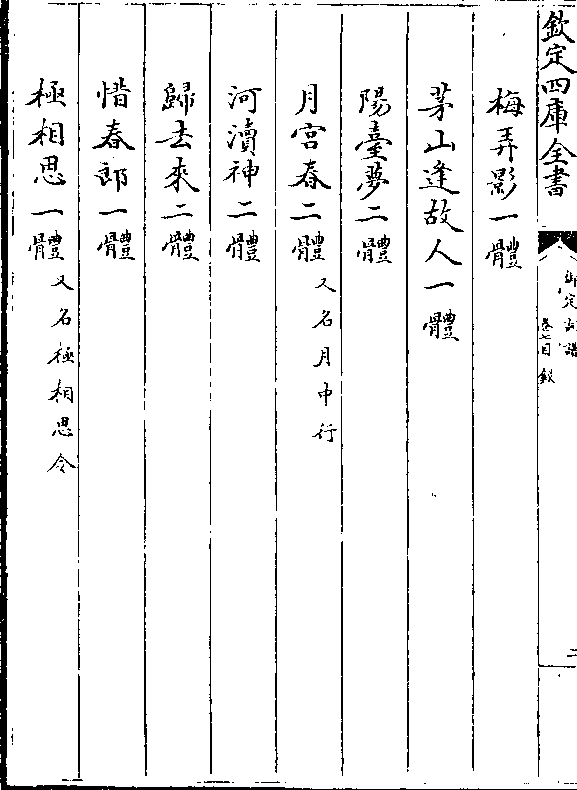 欽定四庫全書
御定詞譜
卷七目錄
二
梅弄影一體
茅山逢故人一體
陽臺夢二體
月宮春二體又名月中行
河瀆神二體
歸去來二體
惜春郎一體
極相思一體又名極相思令